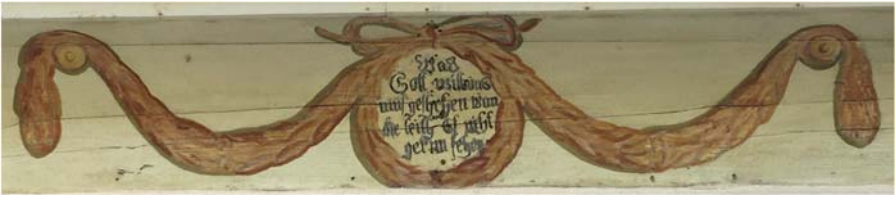 Was
Gott will das
mus geschehen wan
die leith Es nicht
gern sehen